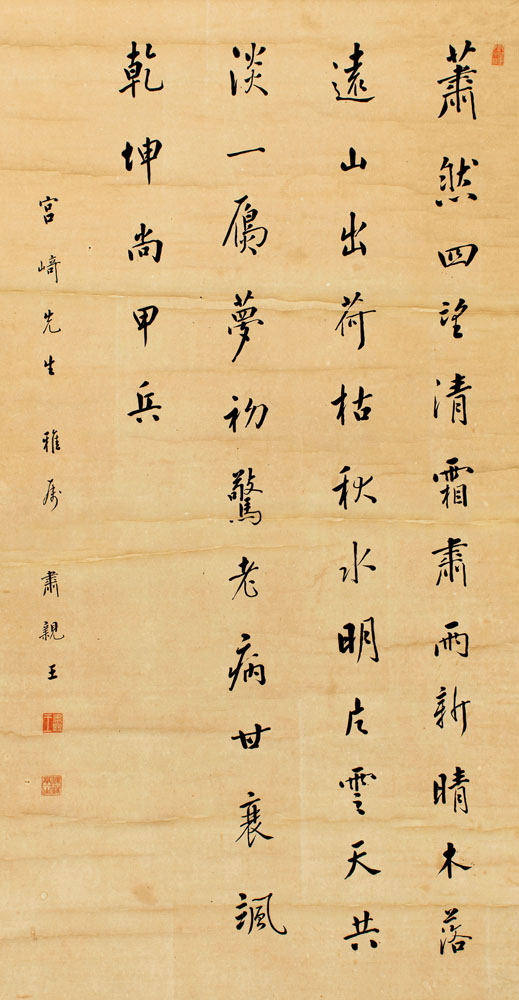 蕭然四望清霜肅雨新晴木落
遠山出荷枯秋水明片雲天共
淡一鴈夢初驚老病甘衰颯
乾坤尚甲兵
宮﨑先生雅属 肅親王